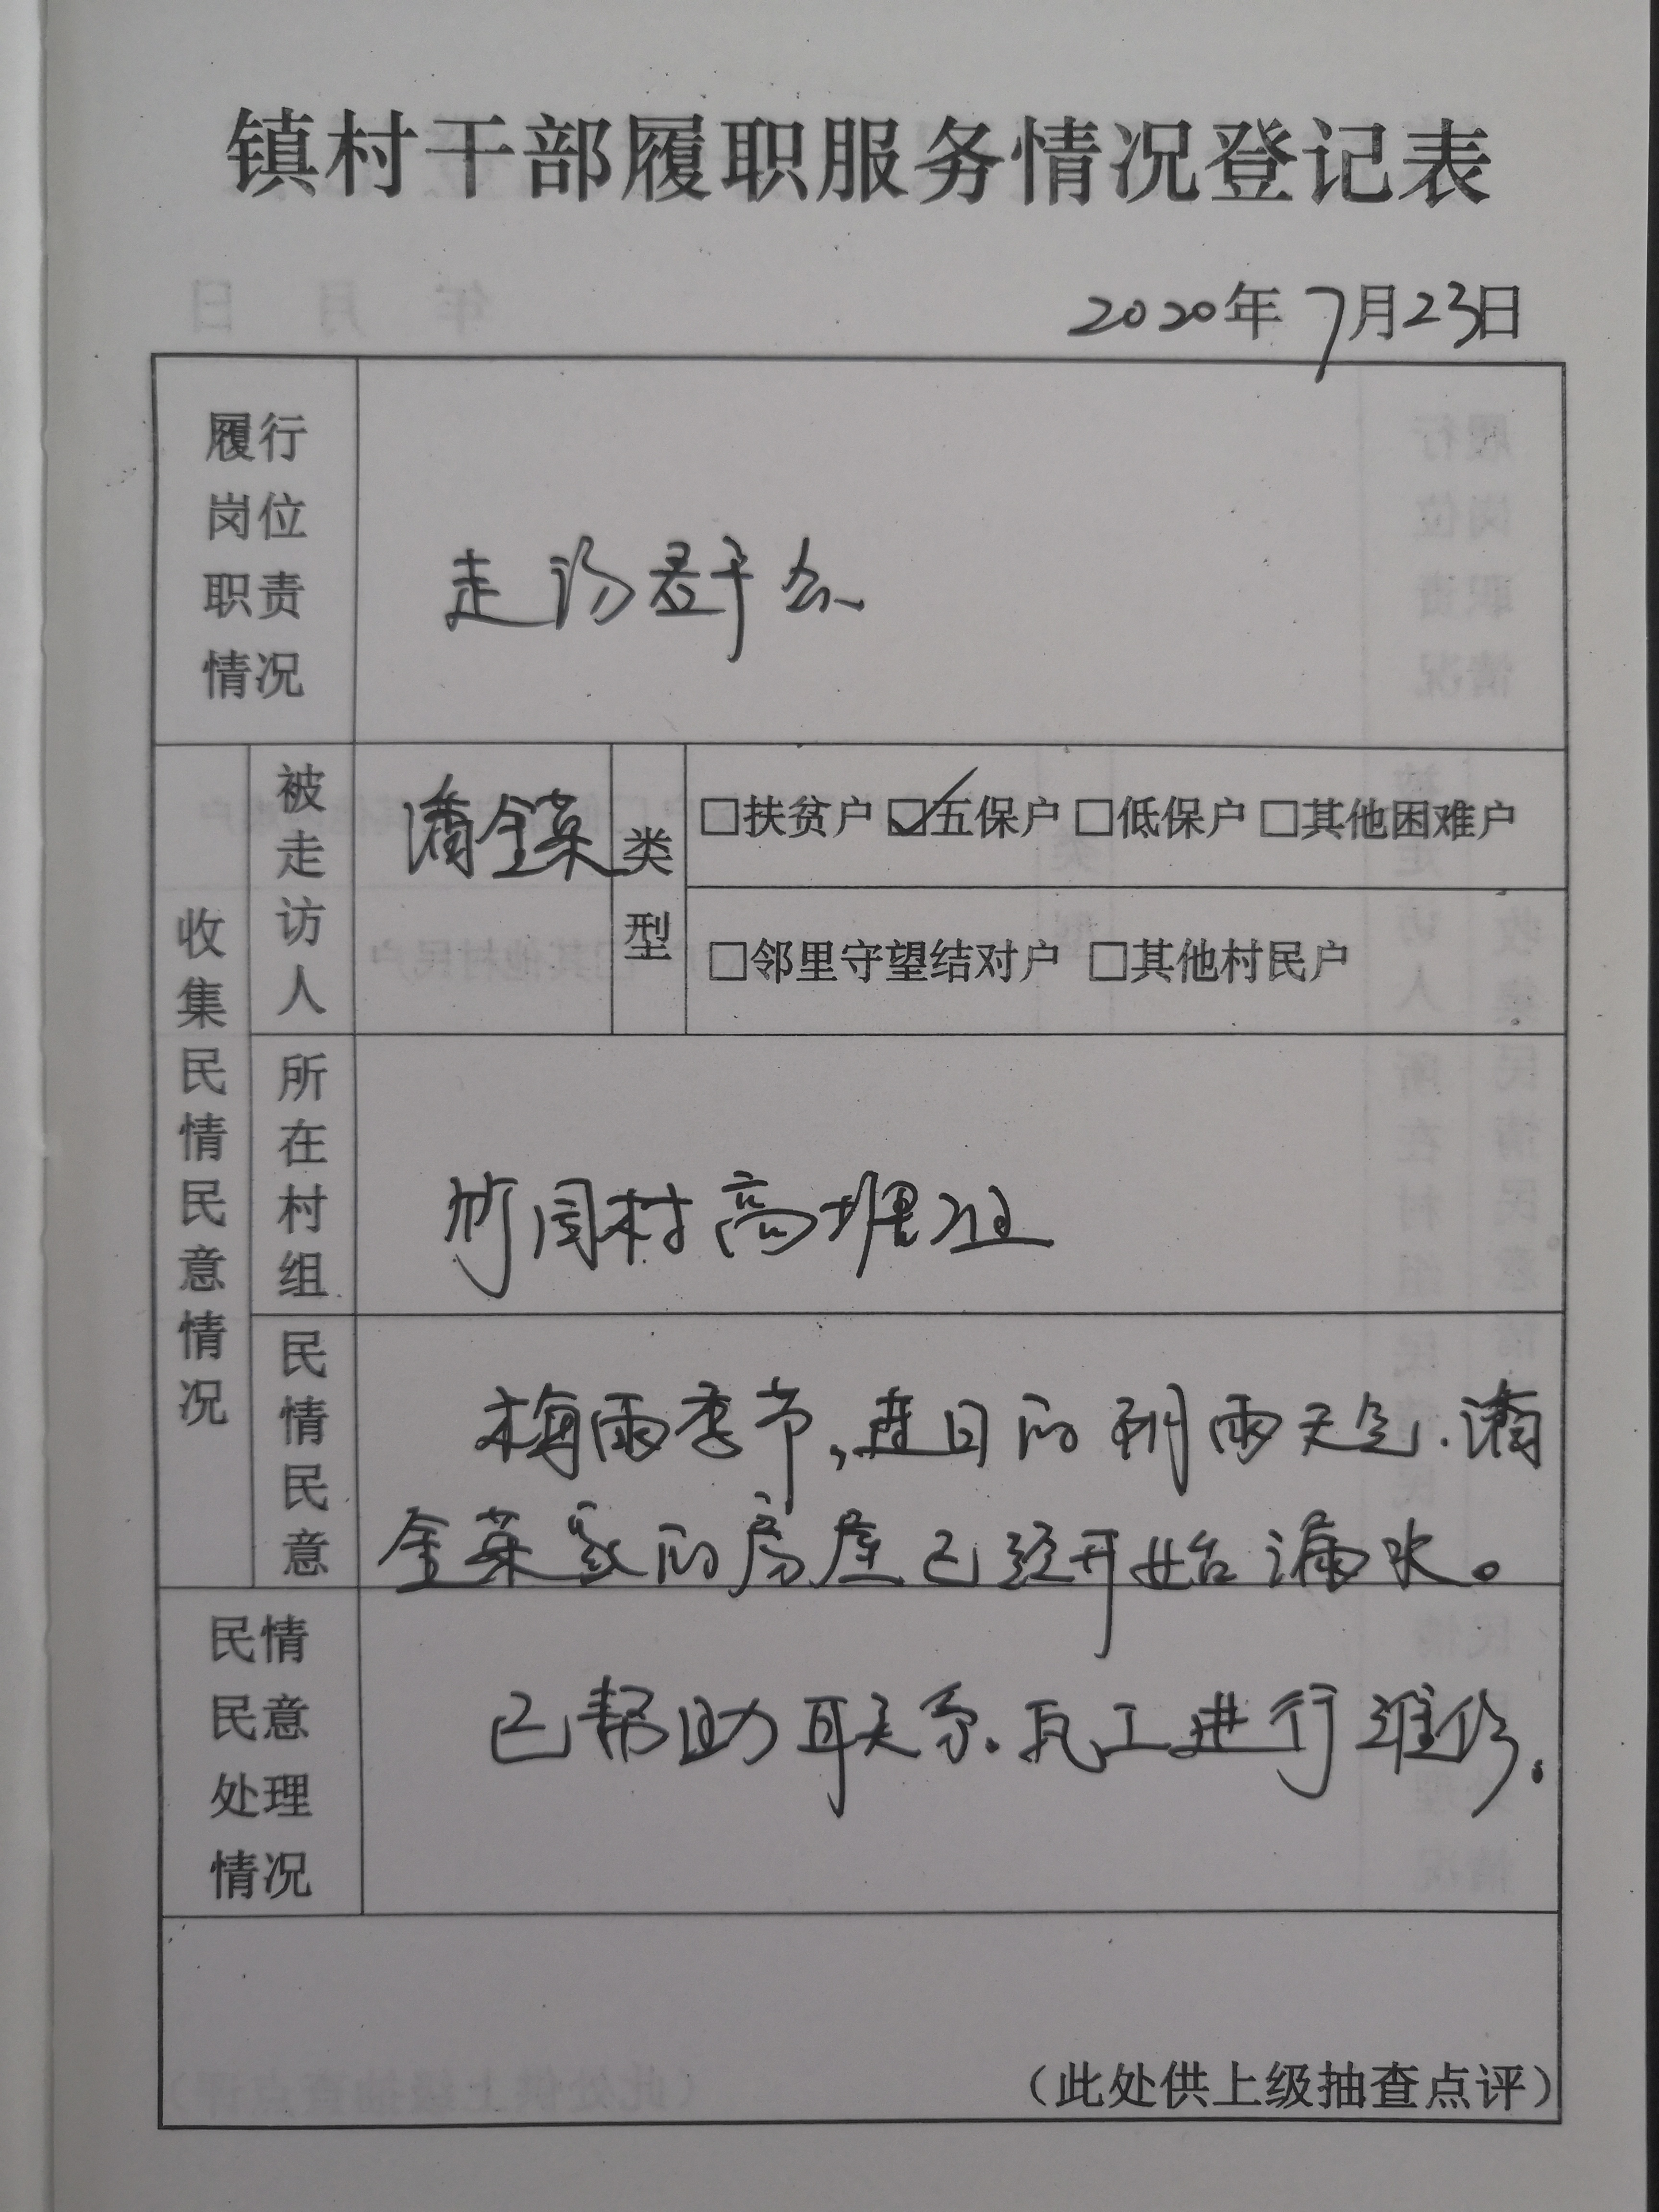 镇村干部履职服务情况登记表
2020年7月23日
履行
岗位
职责
情况
走访群众
收集民情民意情况
被走访人
潘金英
类型
□扶贫户 ☑五保户 □低保户 □其他困难户
□邻里守望结对户 □其他村民户
所在村组
竹园村高埋组
民情民意
梅雨季节,连日的阴雨天气.潘
金英家的房屋已经开始漏水。
民情
民意
处理
情况
已帮助联系.瓦工进行维修.
(此处供上级抽查点评)